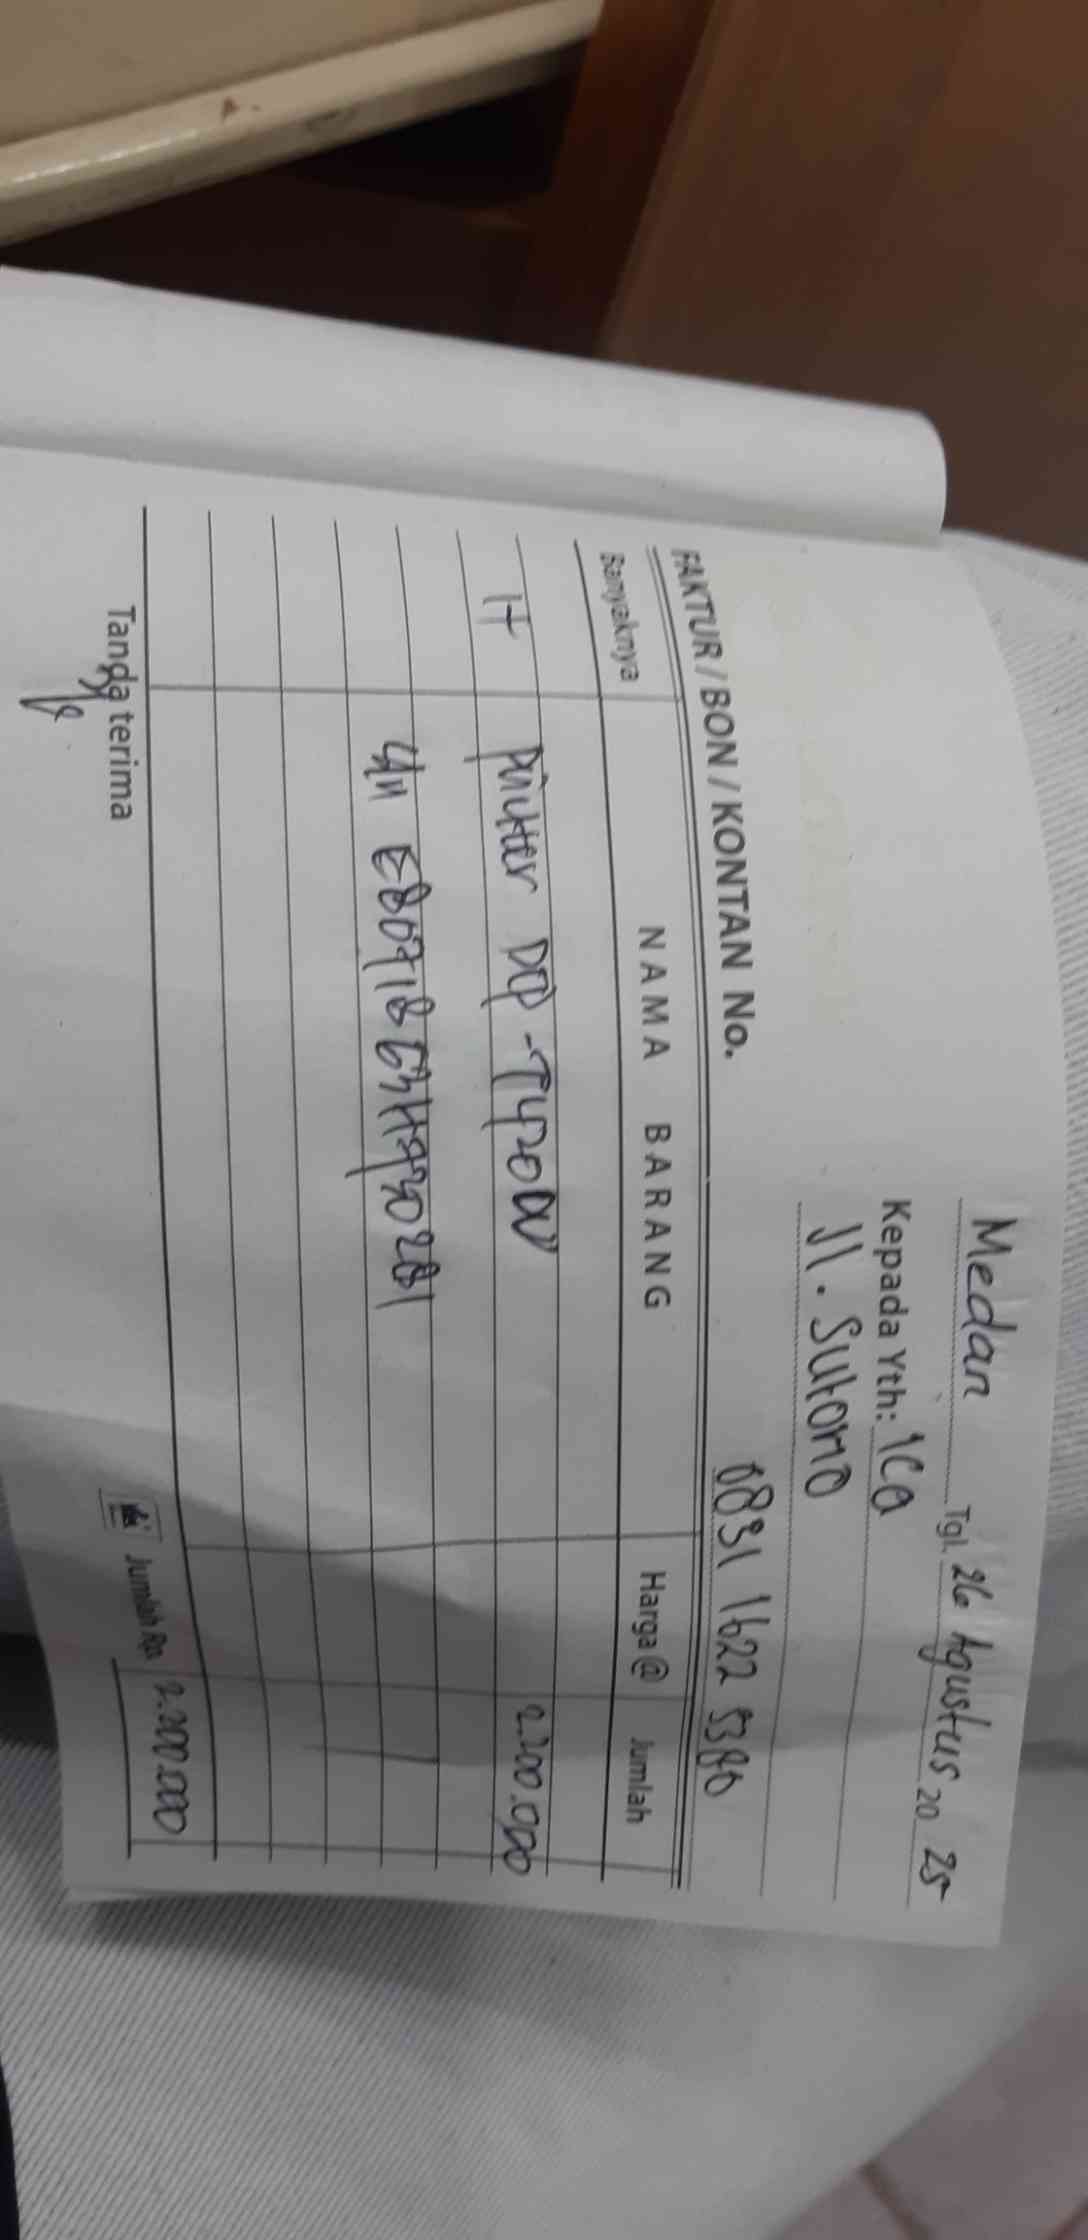 Medan Tgl. 26 Agustus 20 25
Kepada Yth: ica
Jl. Sutomo
0831 1622 5380
FAKTUR / BON / KONTAN No.
Banyaknya NAMA BARANG Harga @ Jumlah
1+ Printer DCP-T420W 2.200.000
S/N
Jumlah Rp. 2.200.000
Tanda terima